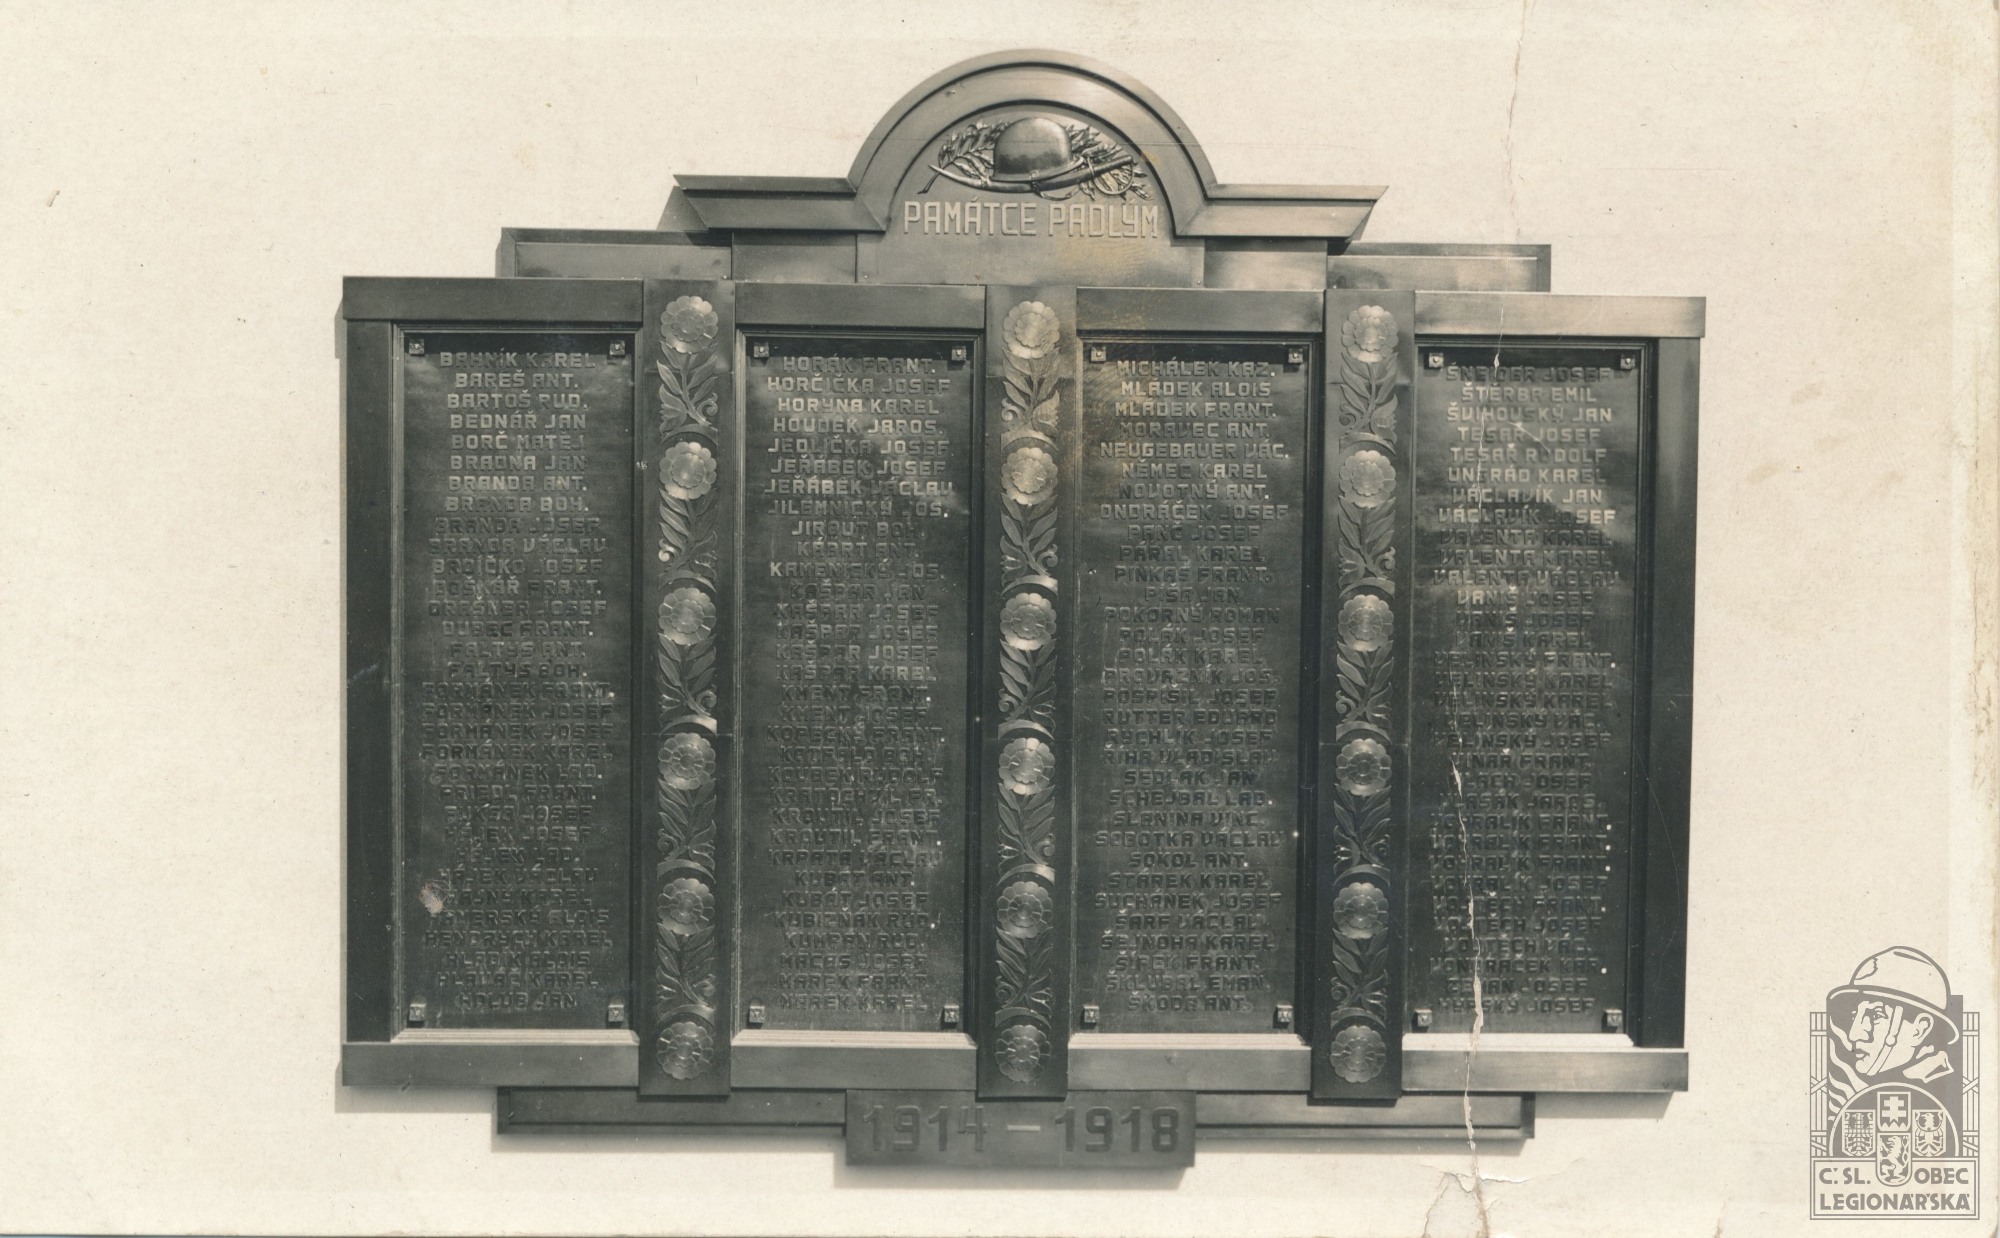 PAMÁTCE PADLÝM
BAHNÍK KAREL
BAREŠ ANT.
BARTOŠ RUD.
BEDNÁŘ JAN
BORČ MATĚJ
BRADNA JAN
BRANDA ANT.
BRANDA BOH.
BRANDA JOSEF
BRANDA VÁCLAV
BRDÍČKO JOSEF
DOŠKÁŘ FRANT.
DRAŠNER JOSEF
DUBEC FRANT.
FALTYS ANT.
FALTYS BOH.
FORMÁNEK FRANT.
FORMÁNEK JOSEF
FORMÁNEK JOSEF
FORMÁNEK KAREL
FORMÁNEK LAD.
FRIEDL FRANT.
FUKSA JOSEF
HÁJEK JOSEF
HÁJEK LAD.
HÁJEK VÁCLAV
HAJNÝ KAREL
HAMERSKÝ ALOIS
HENDRYCH KAREL
HLADÍK ALOIS
HLAVÁČ KAREL
HOLUB JAN
HORÁK FRANT.
HORČIČKA JOSEF
HORYNA KAREL
HOUDEK JAROS.
JEDLIČKA JOSEF
JEŘÁBEK JOSEF
JEŘÁBEK VÁCLAV
JILEMNICKÝ JOS.
JIROUT BOH.
KÁBRT ANT.
KAMENICKÝ JOS.
KAŠPAR JAN
KAŠPAR JOSEF
KAŠPAR JOSEF
KAŠPAR JOSEF
KAŠPAR KAREL
KMENT FRANT.
KMENT JOSEF
KOPECKÝ FRANT.
BOH.
KOUBEK RUDOLF
KROUTIL JOSEF
KROUTIL FRANT.
KRPATA VÁCLAV
KUBÁT ANT.
KUBÁT JOSEF
KUBIZŇÁK RUD.
RUD.
MACES JOSEF
MAREK FRANT.
MAREK KAREL
MICHÁLEK KAZ.
MLÁDEK ALOIS
MLÁDEK FRANT.
MORAVEC ANT.
NEUGEBAUER VÁC.
NĚMEC KAREL
NOVOTNÝ ANT.
ONDRÁČEK JOSEF
PANČ JOSEF
PÁRAL KAREL
PINKAS FRANT.
PÍSA JAN
POKORNÝ ROMAN
POLÁK JOSEF
POLÁK KAREL
PROVAZNÍK JOS.
POSPÍŠIL JOSEF
RUTTER EDUARD
RYCHLÍK JOSEF
ŘÍHA VLADISLAV
SEDLÁK JAN
SCHEJBAL LAD.
SLANINA VINC.
SOBOTKA VÁCLAV
SOKOL ANT.
STAREK KAREL
SUCHÁNEK JOSEF
ŠARF VÁCLAV
ŠEJNOHA KAREL
ŠIFEK FRANT.
ŠKLUBAL EMAN.
ŠKODA ANT.
ŠNEIDER JOSEF
ŠTĚRBA EMIL
ŠVIHOVSKÝ JAN
TESAŘ JOSEF
TESAŘ RUDOLF
UNGRÁD KAREL
VÁCLAVÍK JAN
VÁCLAVÍK JOSEF
VALENTA KAREL
VALENTA KAREL
VALENTA VÁCLAV
VANIŠ JOSEF
VANIŠ JOSEF
VANIŠ KAREL
VELINSKÝ FRANT.
VELINSKÝ KAREL
VELINSKÝ KAREL
VELINSKÝ VÁC.
VELINSKÝ JOSEF
VINAŘ FRANT.
VLACH JOSEF
VLASÁK JAROS.
VOBRALÍK FRANT.
VOBRALÍK FRANT.
VOBRALÍK FRANT.
VOBRALÍK JOSEF
VOJTĚCH FRANT.
VOJTĚCH JOSEF
VOJTĚCH VÁC.
VONDRÁČEK KAR.
ZEMAN JOSEF
JOSEF
1914 – 1918
Č.SL. OBEC
LEGIONÁŘSKÁ